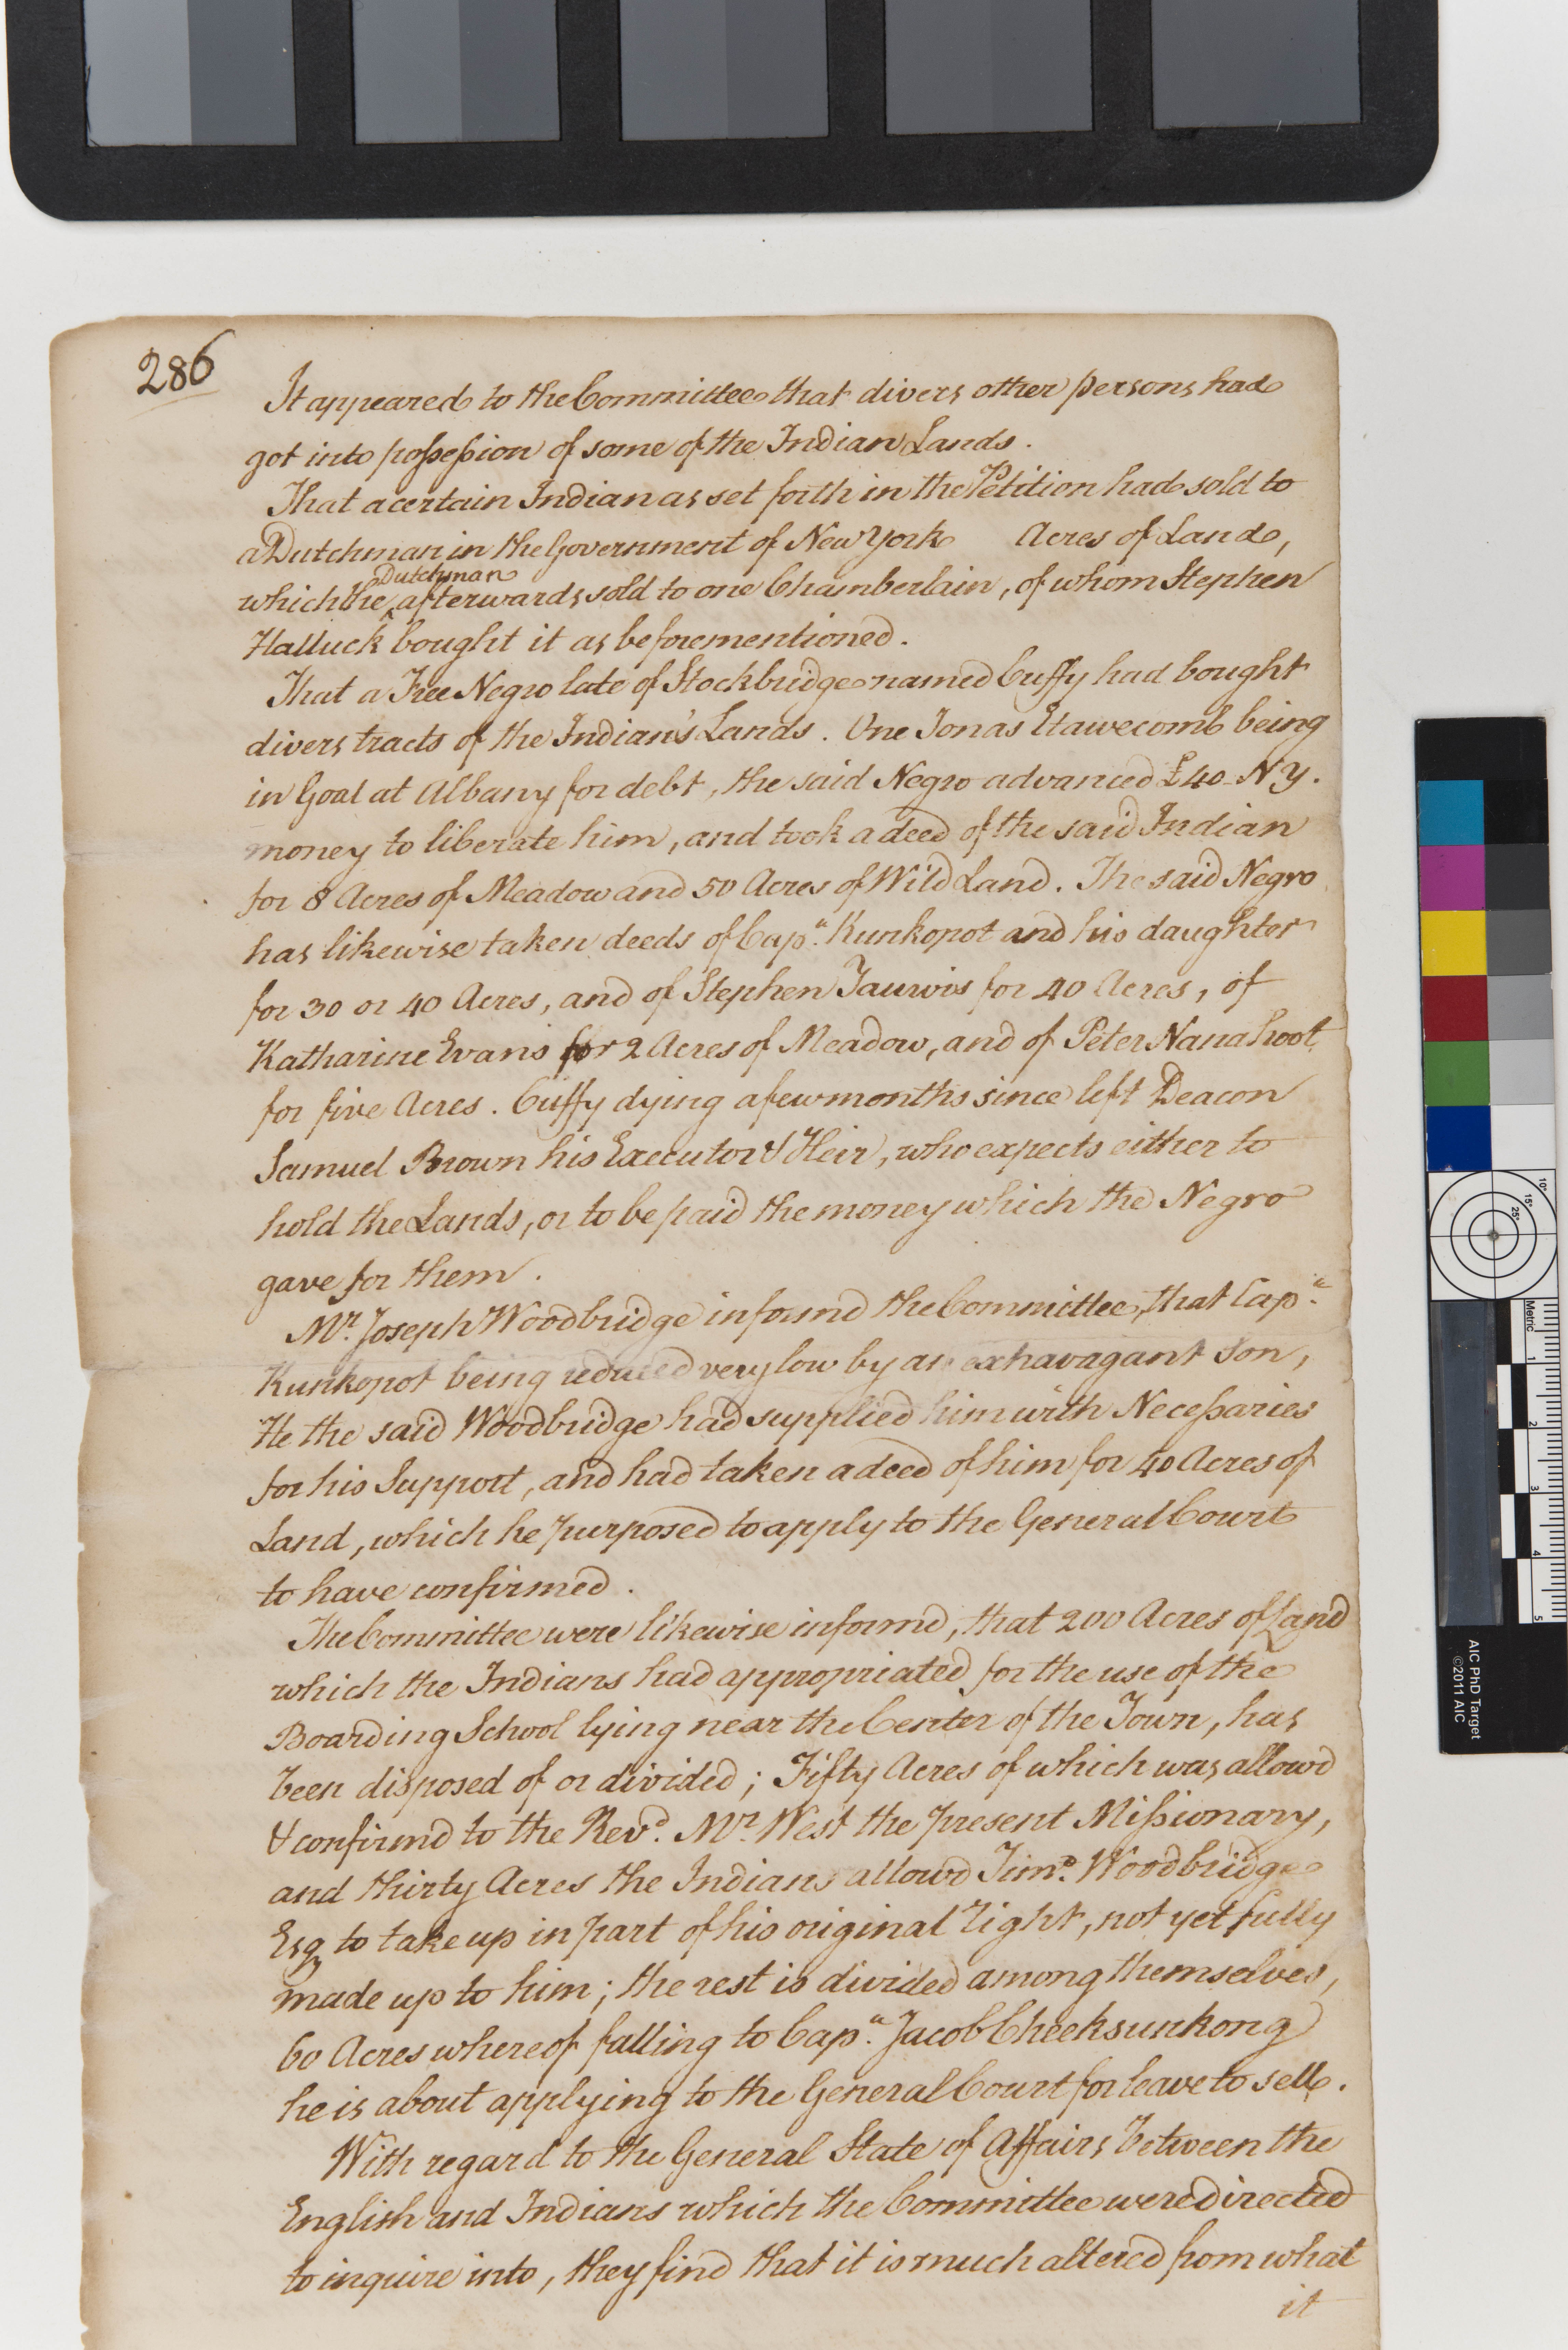 286
It appeared to the Committee that divers other persons had
got into possession of some of the Indian Lands.
That a certain Indian as set forth in the Petition had sold to
a Dutchman in the Government of New York Acres of Land,
Dutchman
which the ‸ afterwards sold to one Chamberlain, of whom Stephen
Halluck bought it as beforementioned.
That a Free Negro late of Stockbridge named Cuffy had bought
divers tracts of the Indian's Lands. One Jonas Etawecomb being
in Goal at Albany for debt, the said Negro advanced £40 N Y.
money to liberate him, and took a deed of the said Indian
for 8 Acres of Meadow and 50 Acres of Wild Land. The said Negro
has likewise taken deeds of Capn. Kunkopot and his daughter
for 30 or 40 Acres, and of Stephen Taurvis for 40 Acres, of
Katharine Evans for 2 Acres of Meadow, and of Peter Nanahoot
for five Acres. Cuffy dying a few months since left Deacon
Samuel Brown his Executor & Heir, who expects either to
hold the Lands, or to be paid the money which the Negro
gave for them.
Mr. Joseph Woodbridge informd the Committee, that Capn.
Kunkopot being reduced very low by an exhavagant Son,
He the said Woodbridge had supplied him with Necessaries
for his Support, and had taken a deed of him for 40 Acres of
Land, which he purposed to apply to the General Court
to have confirmed.
The Committee were likewise informd, that 200 Acres of Land
which the Indians had appropriated for the use of the
Boarding School lying near the Center of the Town, has
been disposed of or divided; Fifty Acres of which was allowd
& confirmd to the Revd. Mr. West the present Missionary,
and thirty Acres the Indians allowd Timo. Woodbridge
Esq to take up in part of his original right, not yet fully
made up to him; the rest is divided among themselves,
60 Acres whereof falling to Capn. Jacob Cheeksunkong
he is about applying to the General Court for leave to sell.
With regard to the General State of Affairs between the
English and Indians which the Committee were directed
to inquire into, they find that it is much altered from what
it
10°
15°
25°
Metric
1
2
3
4
5
AIC PhD Target
©2011 AIC